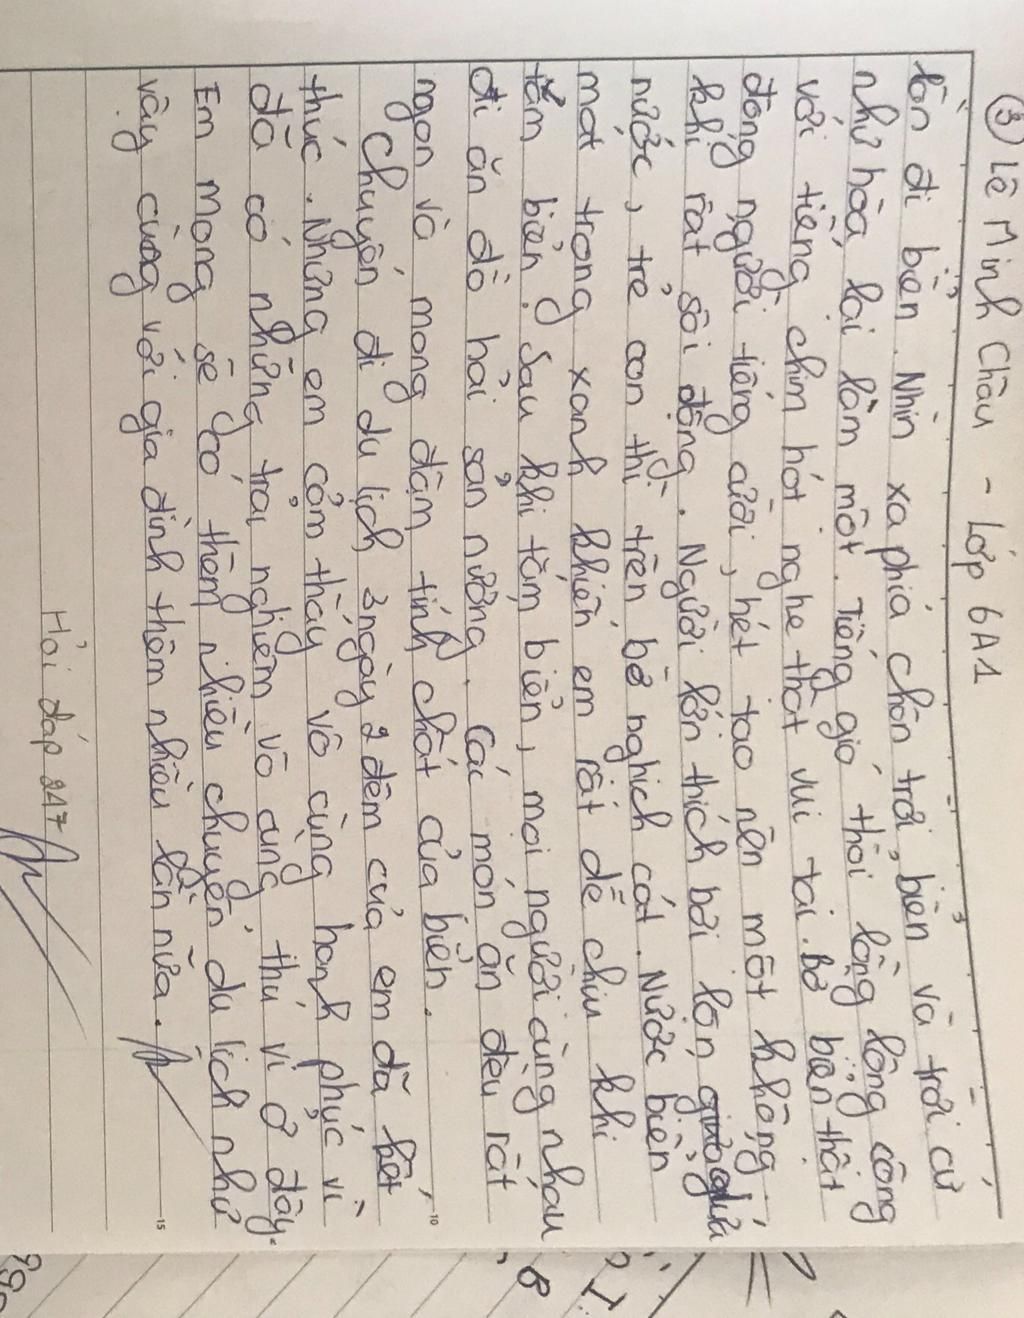 ③ Lê Minh Châu - Lớp 6A1
lần đi biển. Nhìn xa phía chân trời, biển và trời cứ
như hòa lại làm một. Tiếng gió thổi lồng lộng cộng
với tiếng chim hót nghe thật vui tai. Bờ biển thật
đông người tiếng cười, hét tạo nên một không
khí rất sôi động. Người lớn thích bơi lội giữa
nước, trẻ con thì trên bờ nghịch cát. Nước biển
mát trong xanh khiến em rất dễ chịu khi
tắm biển. Sau khi tắm biển, mọi người cùng nhau
đi ăn đồ hải sản nướng. Các món ăn đều rất
ngon và mang đậm tính chất của biển.
Chuyến đi du lịch 3 ngày 2 đêm của em đã kết
thúc. Nhưng em cảm thấy vô cùng hạnh phúc vì
đã có những trải nghiệm vô cùng thú vị ở đây.
Em mong sẽ có thêm nhiều chuyến du lịch như
vậy cùng với gia đình thêm nhiều lần nữa.
Hỏi đáp 247
10
15